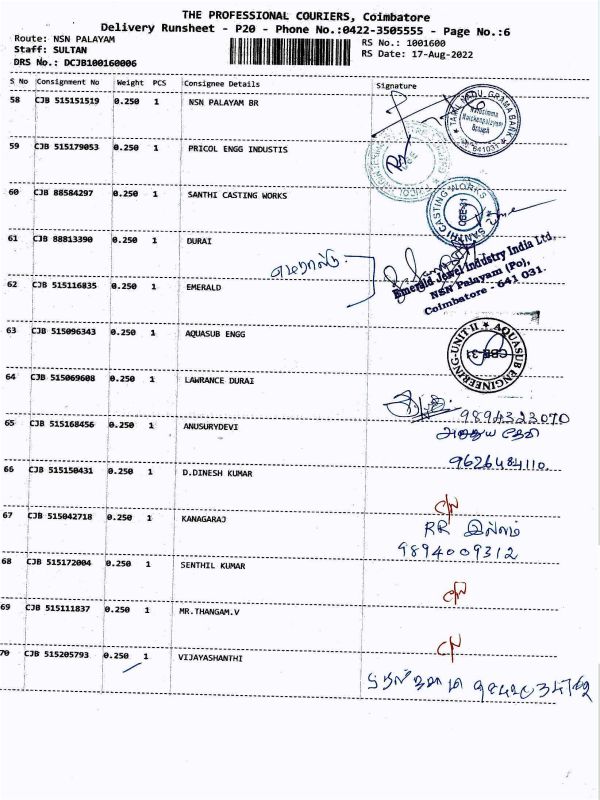 THE PROFESSIONAL COURIERS, Coimbatore
Delivery Runsheet - P20 - Phone No.:0422-3505555 - Page No.:6
Route: NSN PALAYAM
Staff: SULTAN
DRS No.: DCJB100160006
RS No.: 1001600
RS Date: 17-Aug-2022
S No Consignment No Weight PCS Consignee Details Signature
58 CJB 515151519 0.250 1 NSN PALAYAM BR
TAMIL NADU GRAMA BANK
Narasimma
Naickenpalayam
Branch
641031
59 CJB 515179053 0.250 1 PRICOL ENGG INDUSTIS
60 CJB 88584297 0.250 1 SANTHI CASTING WORKS
SANTHI CASTING WORKS
CBE-31
61 CJB 88813390 0.250 1 DURAI
எமரால்டு
Emerald Jewel Industry India Ltd,
NSN Palayam (Po),
Coimbatore - 641 031.
62 CJB 515116835 0.250 1 EMERALD
63 CJB 515096343 0.250 1 AQUASUB ENGG
AQUASUB ENGINEERING-UNIT-II
CBE-31
64 CJB 515069608 0.250 1 LAWRANCE DURAI
9894323070
65 CJB 515168456 0.250 1 ANUSURYDEVI
9626484110
66 CJB 515150431 0.250 1 D.DINESH KUMAR
C/N
67 CJB 515042718 0.250 1 KANAGARAJ
RR இல்லம்
9894009312
68 CJB 515172004 0.250 1 SENTHIL KUMAR
C/N
69 CJB 515111837 0.250 1 MR.THANGAM.V
C/N
70 CJB 515205793 0.250 1 VIJAYASHANTHI